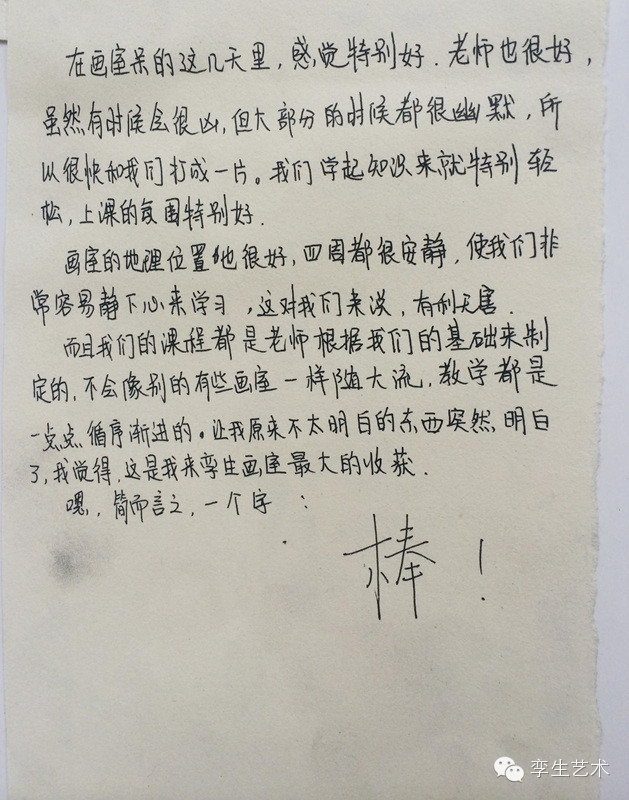 在画室呆的这几天里，感觉特别好．老师也很好，
虽然有时候会很凶，但大部分的时候都很幽默，所
以很快和我们打成一片。我们学起知识来就特别轻
松，上课的氛围特别好．
画室的地理位置也很好，四周都很安静，使我们非
常容易静下心来学习，这对我们来说，有利无害．
而且我们的课程都是老师根据我们的基础来制
定的，不会像别的有些画室一样随大流，教学都是
一点点循序渐进的。让我原来不太明白的东西突然明白
了，我觉得，这是我来孪生画室最大的收获．
嗯，简而言之，一个字：
棒！
孪生艺术